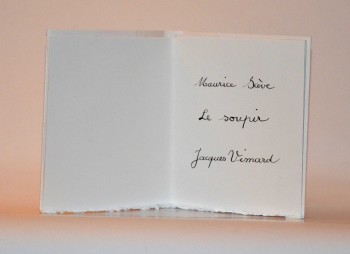 Maurice Scève
Le soupir
Jacques Vimard